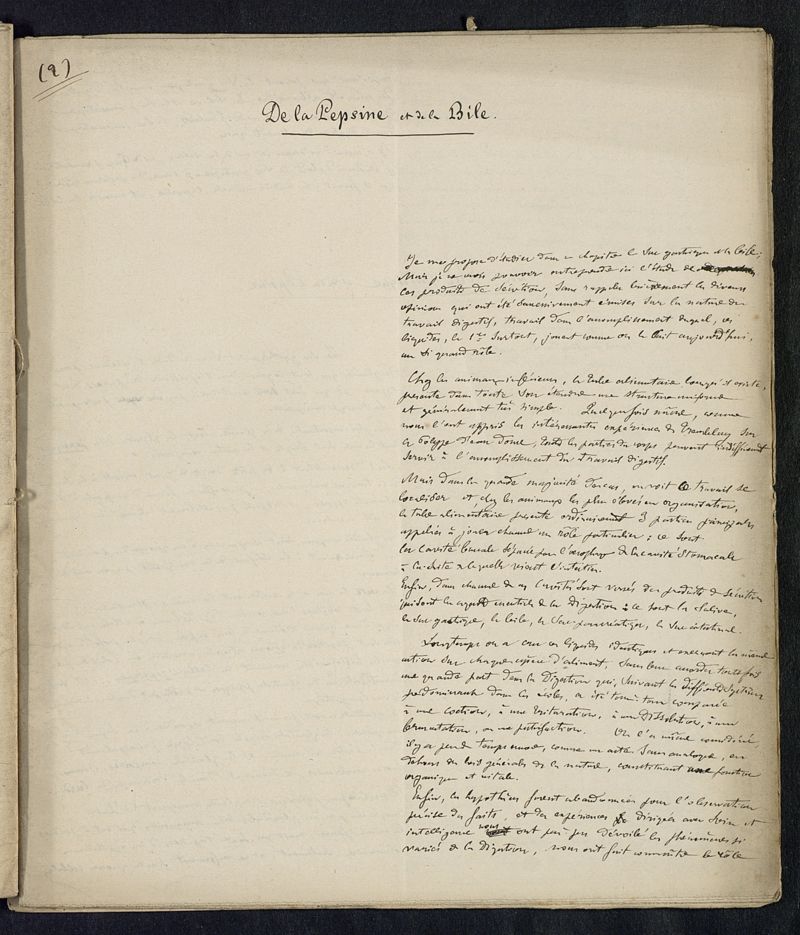 (2)
De la Pepsine et de la Bile.
Je me propose d'étudier dans ce chapitre le Suc gastrique et la bile;
Mais je ne crois pouvoir entreprendre ici l'étude de
ces produits de Sécrétion, sans rappeler brièvement les diverses
opinions qui ont été successivement émises sur la nature du
travail digestif, travail dans l'accomplissement duquel, ces
liquides, le 1er surtout, jouent comme on le sait aujourd'hui,
un si grand rôle.
Chez les animaux inférieurs, le tube alimentaire lorsqu'il existe,
présente dans toute son étendue une structure uniforme
et généralement très simple. Quelquefois même, comme
nous l'ont appris les intéressantes expériences de Trembley sur
le Polype d'eau douce, toutes les parties du corps peuvent indifféremment
servir à l'accomplissement du travail digestif.
Mais dans la grande majorité des cas, on voit ce travail se
localiser et chez les animaux les plus élevés en organisation,
le tube alimentaire présente ordinairement 3 parties principales
appelées à jouer chacune un rôle particulier: ce sont
la cavité buccale séparée par l'œsophage de la cavité stomacale
à la suite de laquelle vient l'intestin.
Enfin, dans chacune de ces cavités sont versés des produits de sécrétion
qui sont les agents essentiels de la digestion: ce sont la Salive,
le suc gastrique, la bile, le Suc pancréatique, le Suc intestinal.
Longtemps on a cru ces liquides identiques et exerçant la même
action sur chaque espèce d'aliment, sans leur accorder toutefois
une grande part dans la Digestion qui, suivant les différents systèmes
prédominants dans les écoles, a été tour à tour comparée
à une coction, à une trituration, à une dissolution, à une
fermentation, ou une putréfaction. On l'a même considérée,
il y a peu de temps encore, comme un acte sans analogue, en
dehors des lois générales de la nature, constituant une fonction
organique et vitale.
Enfin, les hypothèses furent abandonnées pour l'observation
précise des faits, et des expériences dirigées avec soin et
intelligence nous ont peu à peu dévoilé les phénomènes si
variés de la Digestion, nous ont fait connaître le rôle